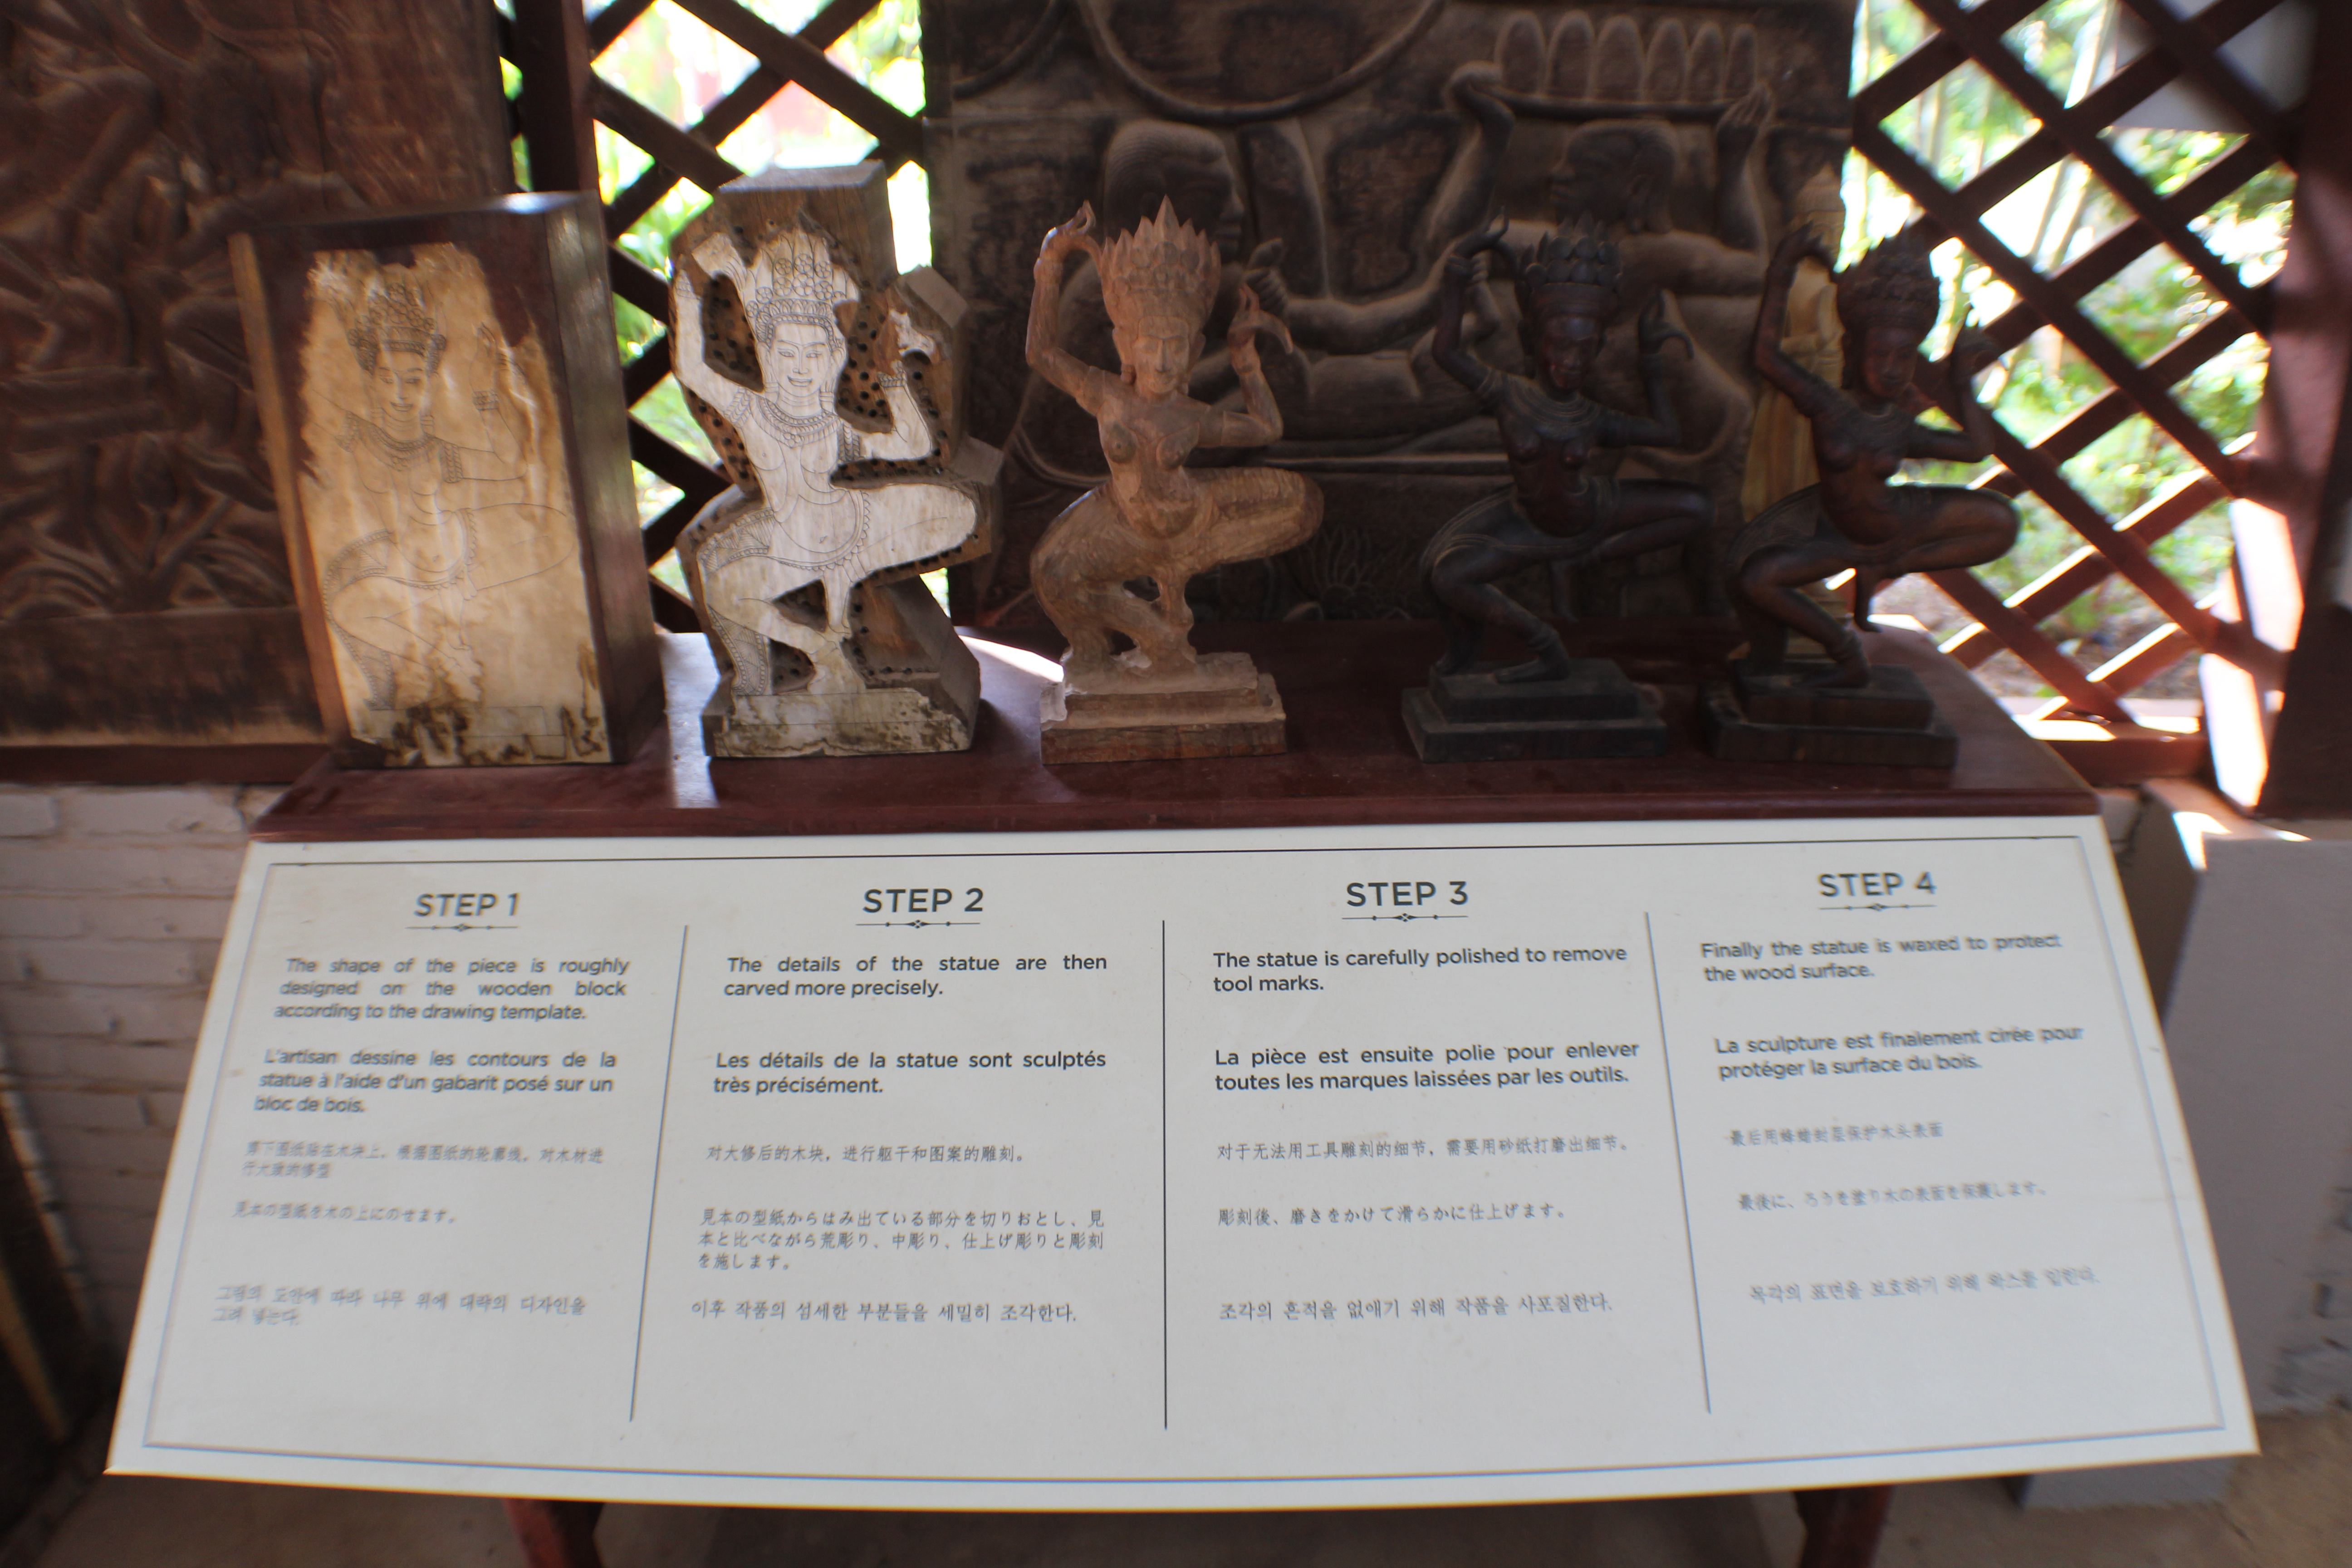 STEP 1
The shape of the piece is roughly
designed on the wooden block
according to the drawing template.
L'artisan dessine les contours de la
statue à l'aide d'un gabarit posé sur un
bloc de bois.
图纸 在木块上，根据图纸的轮廓线，对木材进
行大致的修型
見本の型紙を木の上にのせます。
그림의 도안에 따라 나무 위에 대략의 디자인을
그려 넣는다.
STEP 2
The details of the statue are then
carved more precisely.
Les détails de la statue sont sculptés
très précisément.
对大修后的木块，进行躯干和图案的雕刻。
見本の型紙からはみ出ている部分を切りおとし、見
本と比べながら荒彫り、中彫り、仕上げ彫りと彫刻
を施します。
이후 작품의 섬세한 부분들을 세밀히 조각한다.
STEP 3
The statue is carefully polished to remove
tool marks.
La pièce est ensuite polie pour enlever
toutes les marques laissées par les outils.
对于无法用工具雕刻的细节，需要用砂纸打磨出细节。
彫刻後、磨きをかけて滑らかに仕上げます。
조각의 흔적을 없애기 위해 작품을 사포질한다.
STEP 4
Finally the statue is waxed to protect
the wood surface.
La sculpture est finalement cirée pour
protéger la surface du bois.
最后用蜂蜡封层保护木头表面
最後に、ろうを塗り木の表面を保護します。
목각의 표면을 보호하기 위해 왁스를 입힌다.